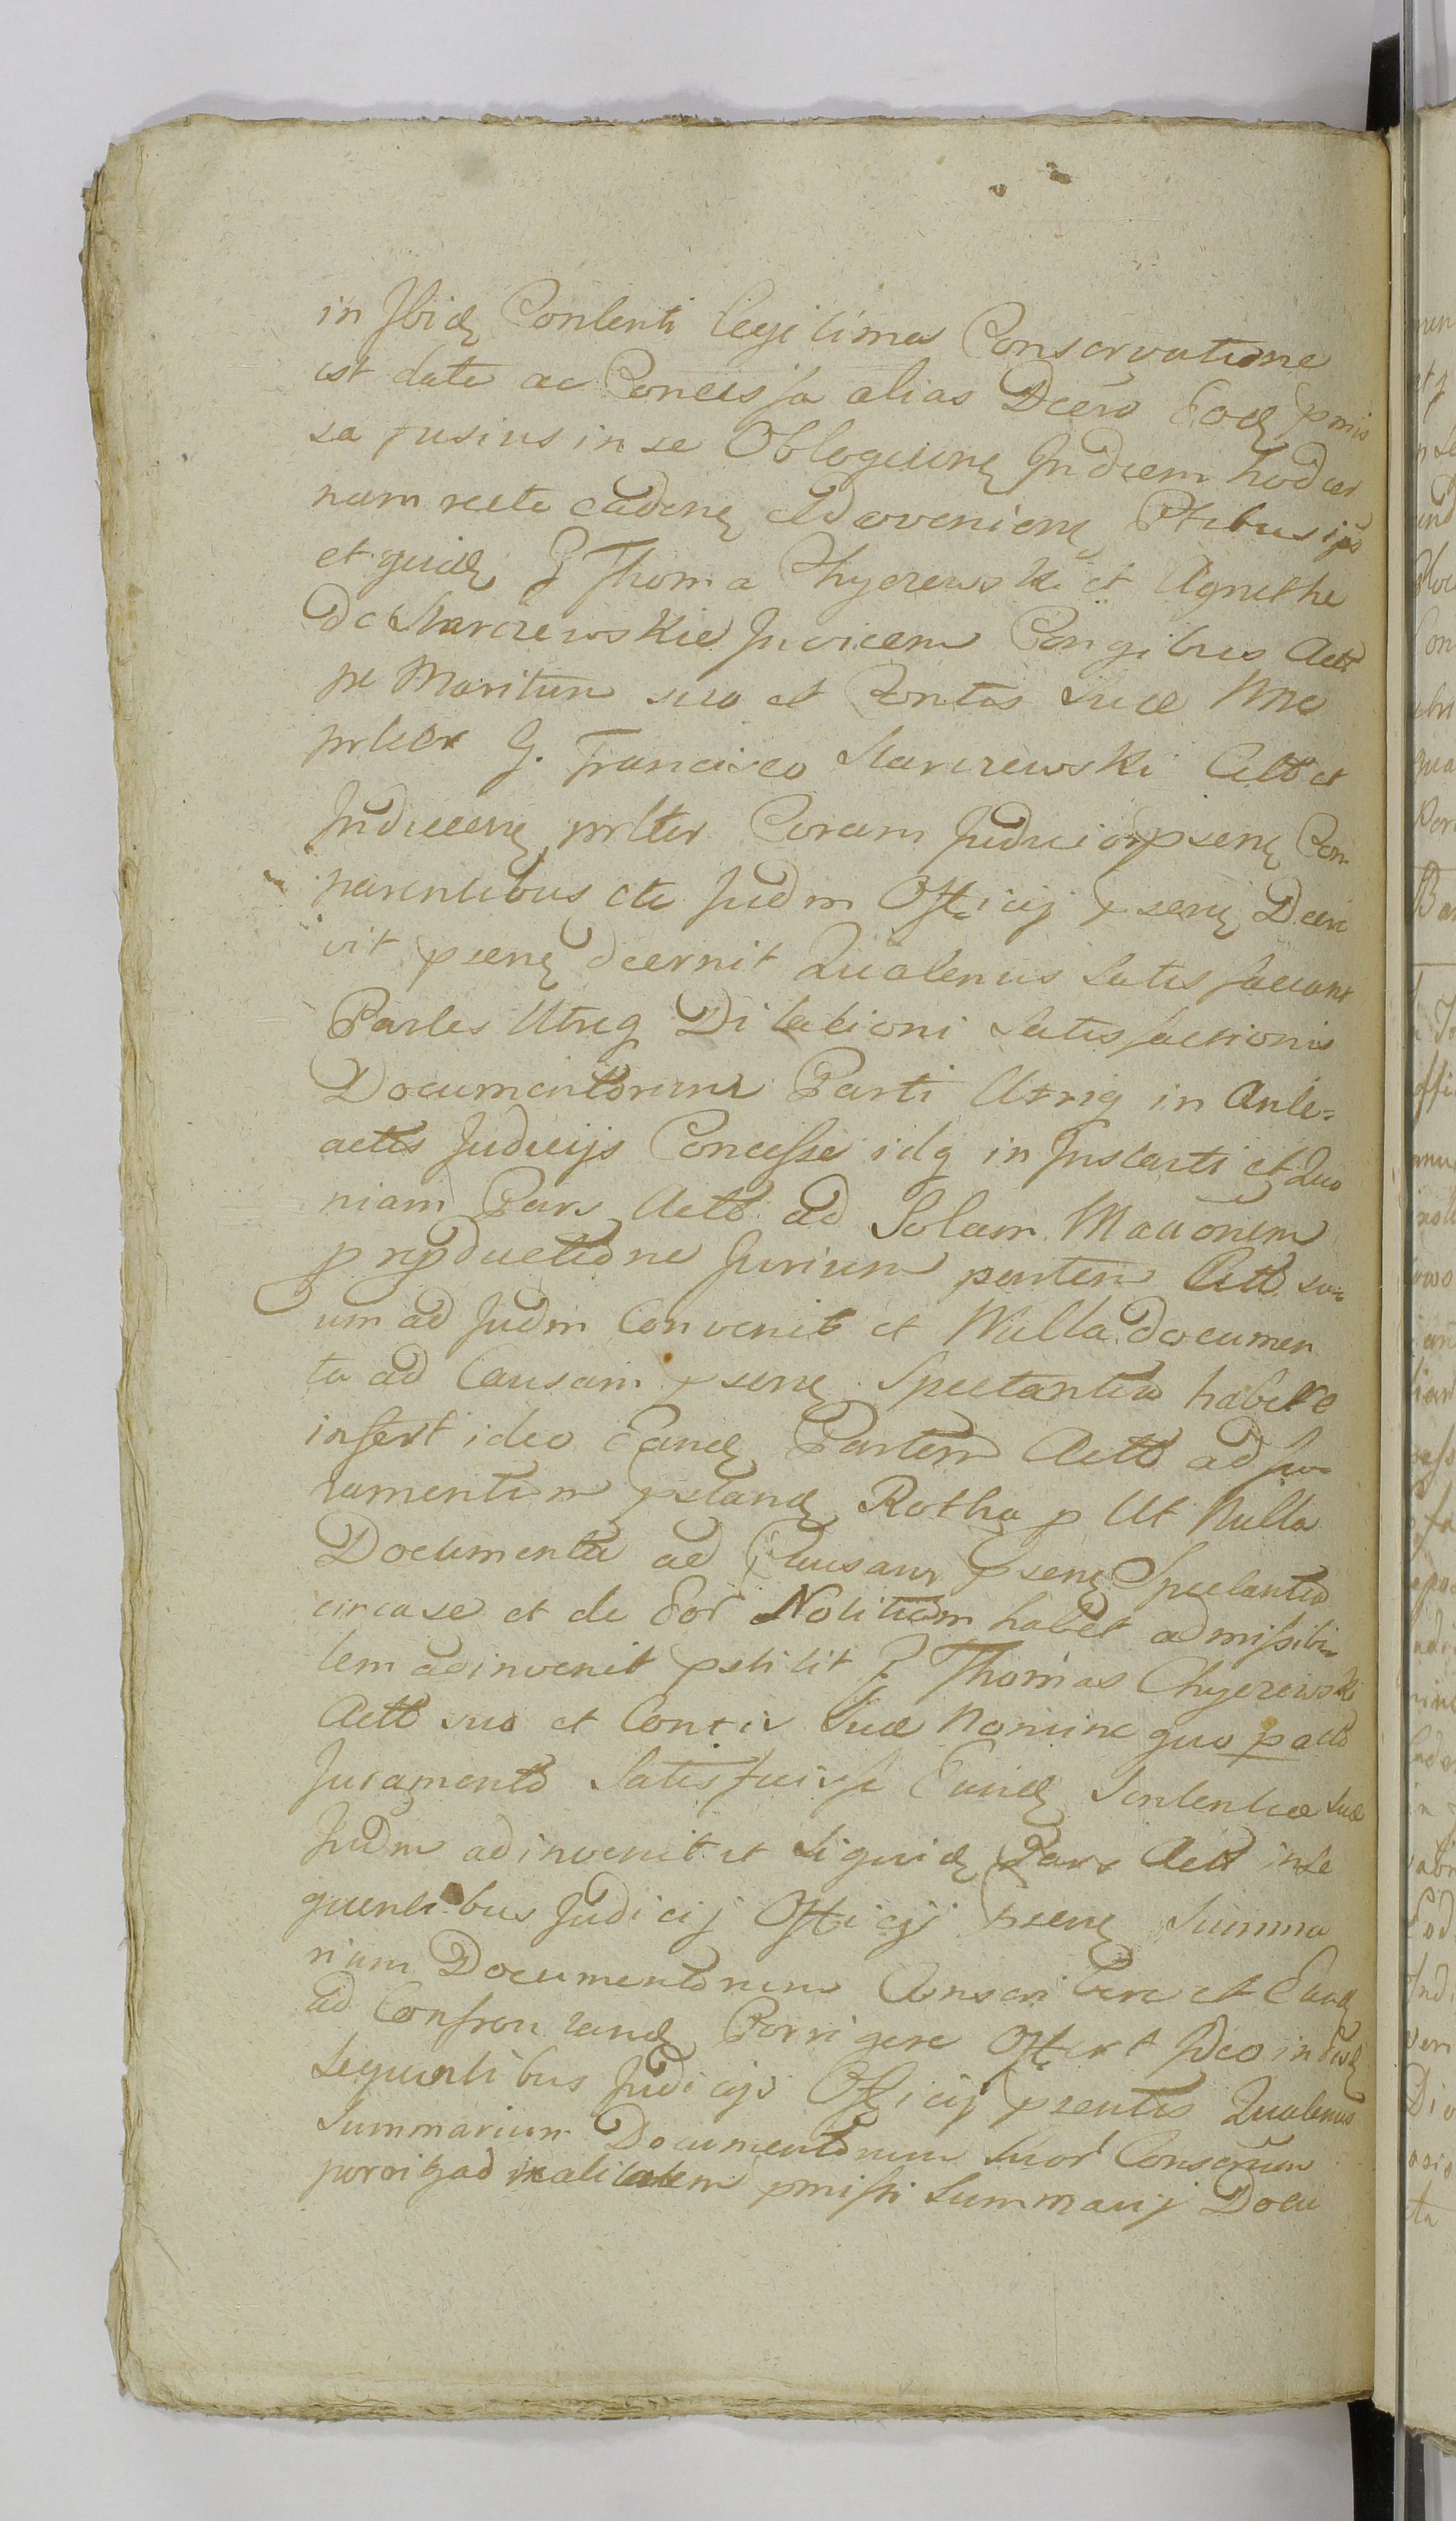 in Ibidę Contenti legitima Conservatione
est data ac Concessa alias Dcẽro Eodę pmis
sa fusius in se Obloquenę In diem hodier
nam recte cadenę Advenienę Ptibus ijs
et quidę G Thoma Chyczewski et Agnethe
de Skarczewskie Invicem Congibus Actt
pe Maritum suo et Contis suæ Nne
prltter G. Francisco Skarczewski Citt et
Judiceenę prltter Coram Judicio psenę Com
parentibus etc Judm Officij psenę Decre
vit psenę decernit Quatenus satis faciant
Partes Utręq Dilationi satisfactionis
Documentorum Parti Utriq in Ante=
actis Judicijs Concesse idq in Instanti et Quo
niam Pars Actt ad Solam Maconem
p reproductione Jurium partem Citt su
um ad Judm Convenit et Nulla documen
ta ad Causam psenę Spectantia habere
infert ideo Eandę Partem Actt ad Ju
ramentum pstandę Rotha p Ut Nulla
Documenta ad Causam psenę Spectantia
circa se et de Eor Notitiam habet admissibi
lem adinvenit pstitit G Thomas Chyczewski
Actt suo et Contis Suæ Nomine quo pacto
Juramento Satisfecisse Eundę Sententiæ suæ
Judm adinvenit et Siquidę Pars Actt in se
quentibus Judicij Officij psenę Summa
rium Documentorum Conscribere et Eundę
ad Confrontandę Porrigere Offert Ideo in
sequentibus Judicijs Officij psentis Quatenus
Summarium Documentorum Suor Conscrum
porrigat ad realitatem pmissi Summarij Docu